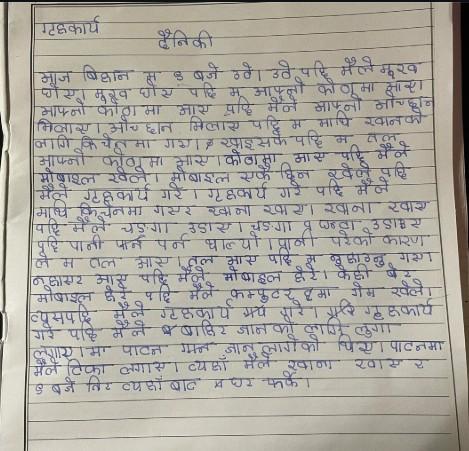 गृहकार्य
दैनिकी
आज बिहान म ८ बजे उठे। उठे पछि मैले मुख
धोए। मुख धोए पछि म आफ्नो कोठामा आए।
आफ्नो कोठामा आए पछि मैले आफ्नो ओछ्यान
मिलाए। ओछ्यान मिलाए पछि म माथि खानको
लागि किचेनमा गए। खाइसके पछि म तल
आफ्नो कोठामा आए। कोठामा आए पछि मैले
मोबाइल खेले। मोबाइल एकै छिन खेले पछि
मैले गृहकार्य गरे। गृहकार्य गरे पछि मैले
माथि किचेनमा गएर खाना खाए। खाना खाए
पछि मैले चङ्गा उडाए। चङ्गा घण्टा उडाए
पछि पानी पर्न थाल्यो। पानी परेको कारण
ले म तल आए। तल आए पछि म नुहाउनु गए।
नुहाएर आए पछि मैले मोबाइल हेरे। केही बेर
मोबाइल हेरे पछि मैले कम्प्युटरमा गेम खेले।
त्यसपछि मैले गृहकार्य गरे। गृहकार्य
गरे पछि मैले बाहिर जानको लागि लुगा
लगाए। मा पाटन जानु लागेको थिए। पाटनमा
मैले टिका लगाए। त्यहाँ मैले खाना खाए र
८ बजे तिर त्यहाँबाट म घर फर्के।